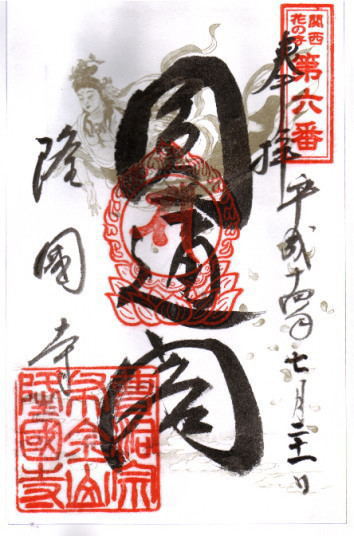 関西
花の寺
第六番
奉拝
平成十四年七月二十一日
圓通閣
隆國寺
曹洞宗
布金山
隆國寺